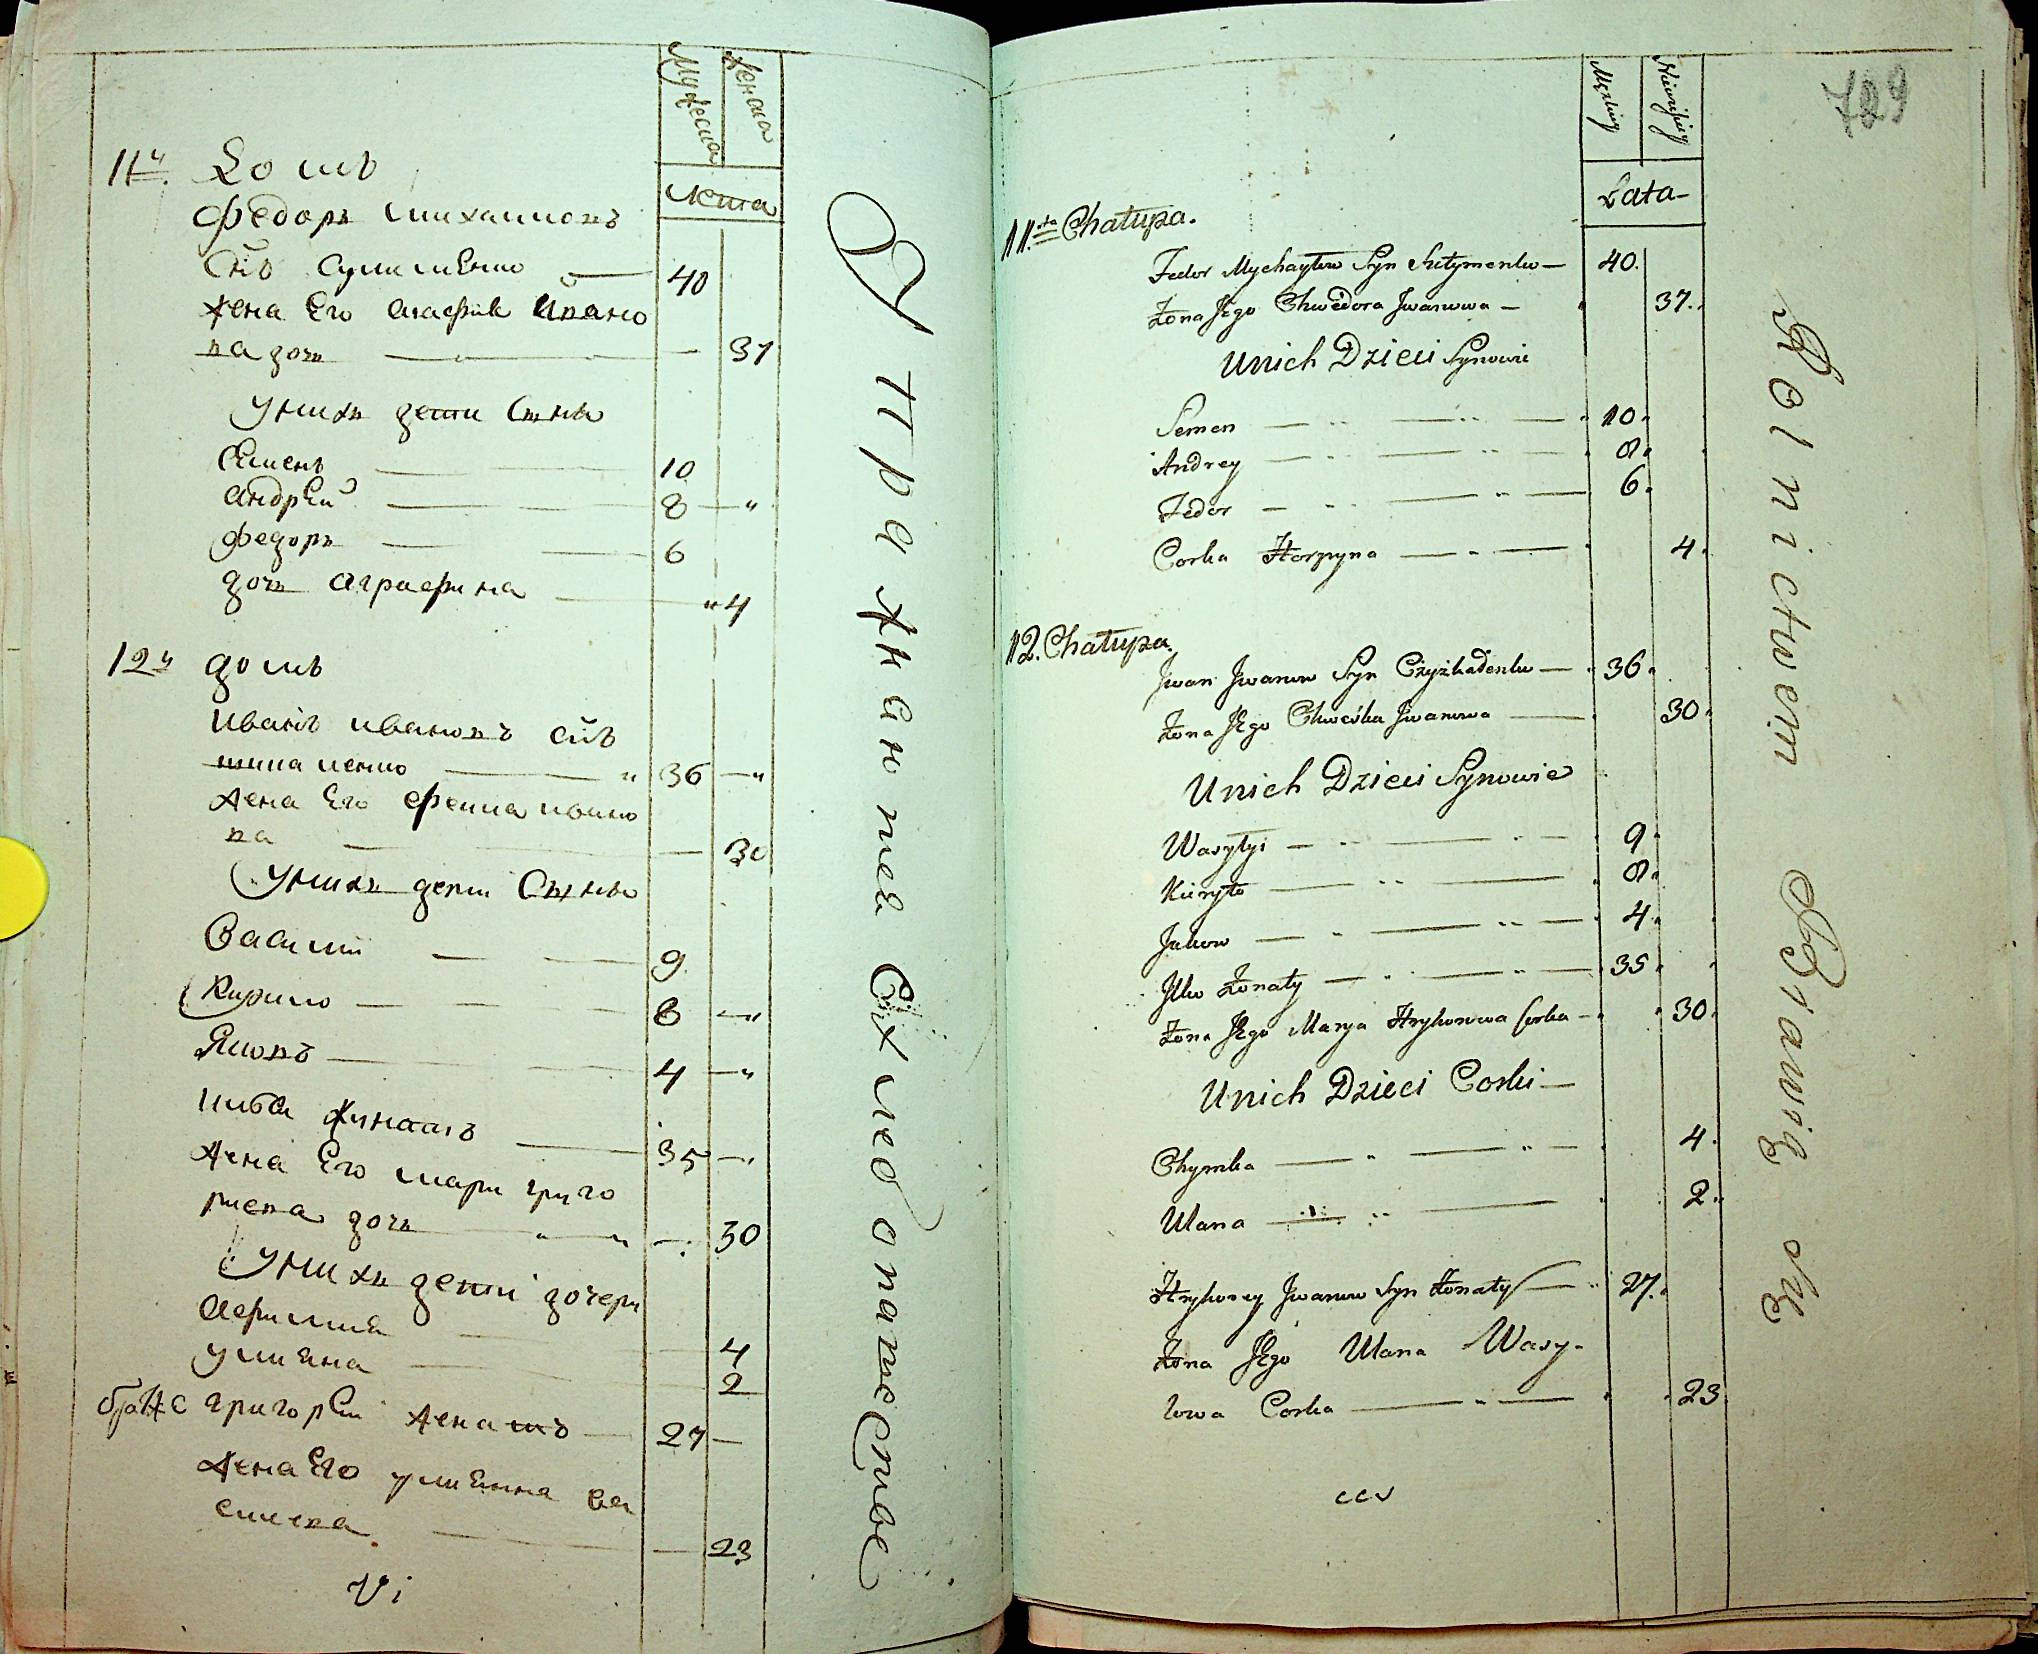 Мужеска
Женска
лета
11й домъ
Федоръ Михаиловъ
сйъ 40
жена Его Ивано
ва дочь 37
Унихъ дети Сынъ
Семенъ 10
Андрей 8 "
Федоръ 6
дочь Аграфина " 4
12й домъ
Иванъ Ивановъ сйъ
36 "
жена Его Феска Ивано
ва 30
Унихъ дети Сынъ
Василий 9
Кирило 8 "
Яковъ 4 "
Илья Жинатъ 35 "
жена Его Мари Григо
риева дочь " " 30
Унихъ дети дочери
Афимия 4
Улияна 2
братъ Григорей женатъ 27
жена Его Улияна Ва
силиева 23
Vi
Упражняются Єхлебопашестве
729
Męskiey
Niewieskiey
Lata
11ta Chałupa.
Fedor Mychayłow Syn Sułymenko 40.
Żona JEgo Chwedora Jwanowa 37.
Unich Dzieci Synowie
Semen 10
Andrey 8
Fedor 6
Corka Horpyna 4
12. Chałupa.
Jwan Jwanow Syn Czyżkadenko 36
Żona JEgo Chweśka Jwanowa 30
Unich Dzieci Synowie
Wasylyi 9
Kieryło 8
Jakow 4
Jlko Żonaty 35
Żona JEgo Marya Hryhorowa Corka 30
Unich Dzieci Corki
Chymka 4
Ulana 2
Hryhorey Jwanow Syn Żonaty 27.
Żona JEgo Ulana Wasy-
lowa Corka 23
ccv
Rolnictwem Bawią się